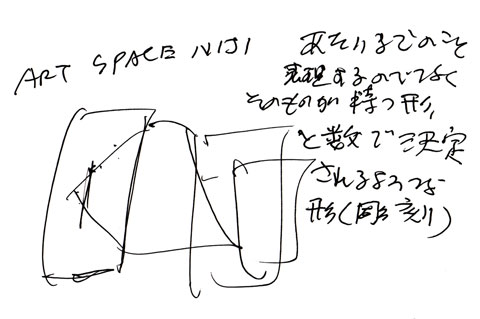 ART SPACE NIJI
のこと
表現するのでなく
そのものが持つ形、
と数で決定
されるような
形(彫刻)